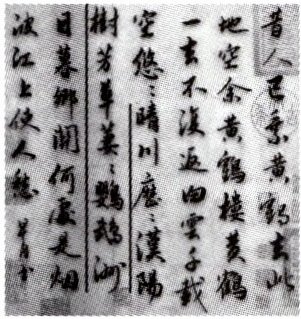 昔人已乘黄鶴去此
地空余黄鶴樓黄鶴
一去不復返白雲千載
空悠々晴川歷々漢陽
樹芳草萋々鸚鵡洲
日暮鄉關何處是烟
波江上使人愁